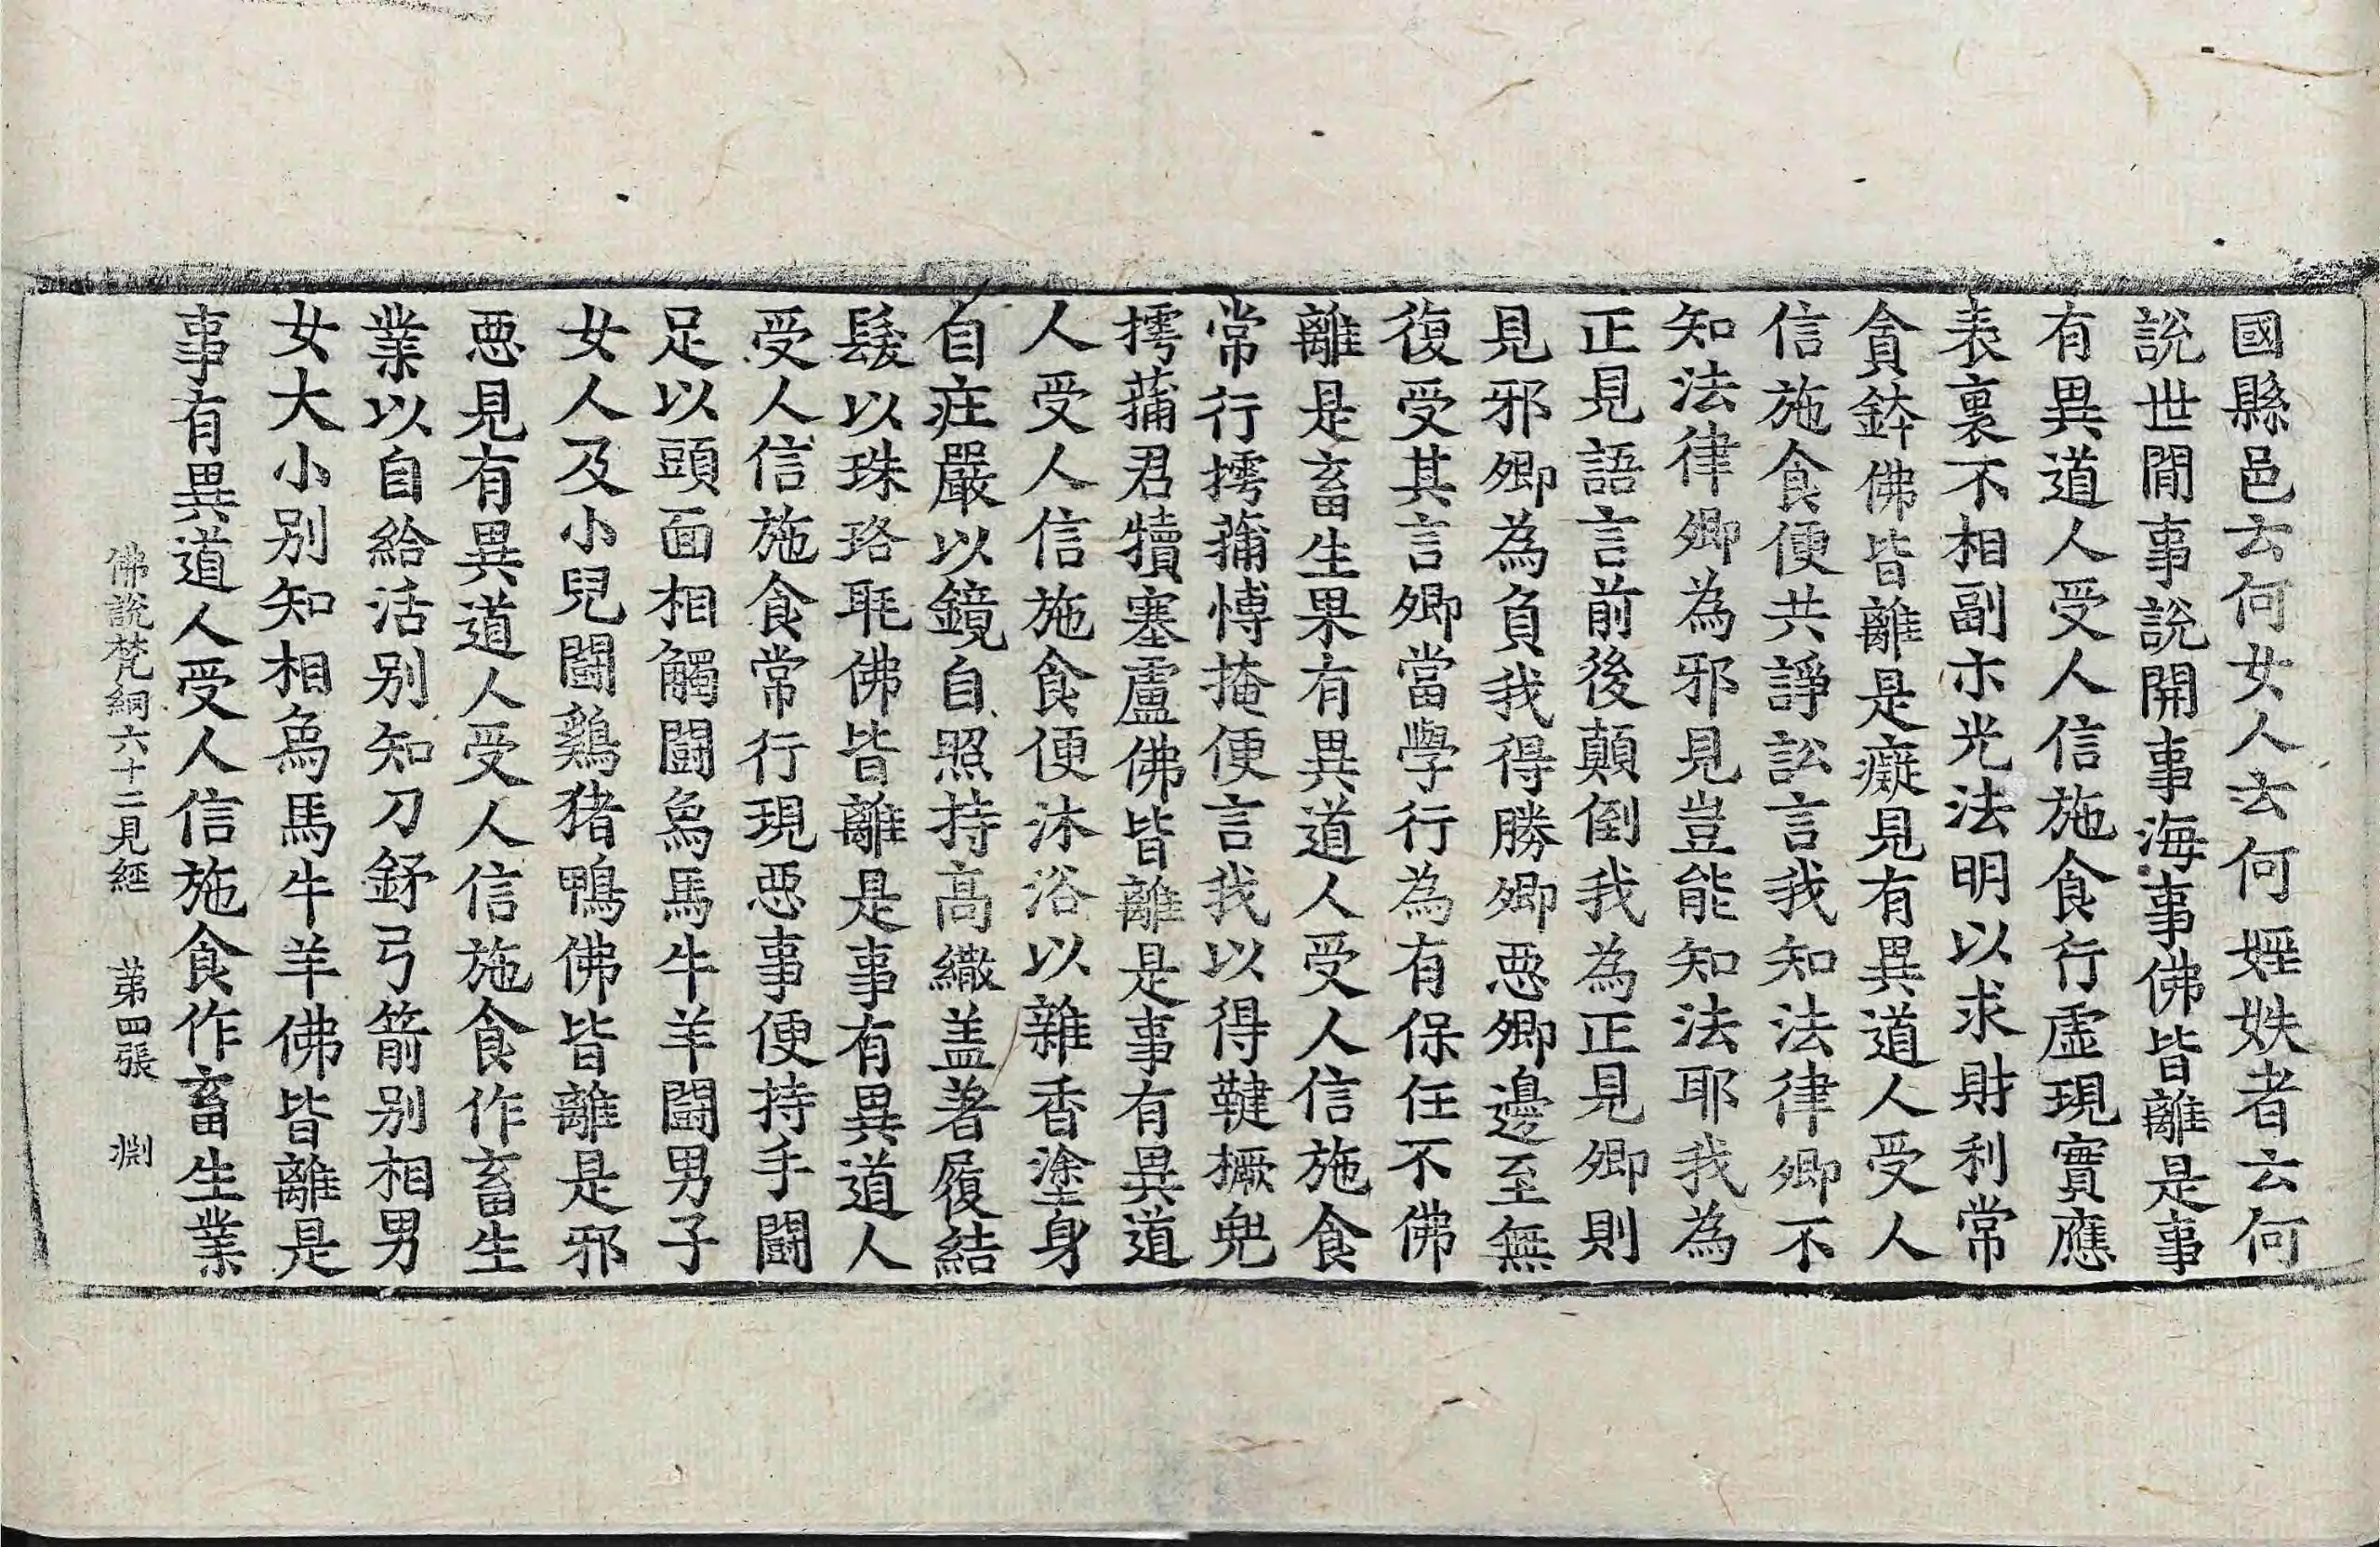 國縣邑云何女人云何婬妷者云何
說世間事說開事海事佛皆離是事
有異道人受人信施食行虛現實應
表裏不相副示光法明以求財利常
貪鉢佛皆離是癡見有異道人受人
信施食便共諍訟言我知法律卿不
知法律卿為邪見豈能知法耶我為
正見語言前後顛倒我為正見卿則
見邪卿為負我得勝卿惡卿邊至無
復受其言卿當學行為有保任不佛
離是畜生果有異道人受人信施食
常行摴蒱博掩便言我以得鞬撅兜
摴蒱君犢塞盧佛皆離是事有異道
人受人信施食便沐浴以雜香塗身
自莊嚴以鏡自照持高繖盖著履結
髲以珠珞毦佛皆離是事有異道人
受人信施食常行現惡事便持手鬪
足以頭面相觸鬪烏馬牛羊鬪男子
女人及小兒鬪鷄猪鴨佛皆離是邪
惡見有異道人受人信施食作畜生
業以自給活別知刀鉾弓箭別相男
女大小別知相烏馬牛羊佛皆離是
事有異道人受人信施食作畜生業
佛說梵網六十二見經 苐四張 淵